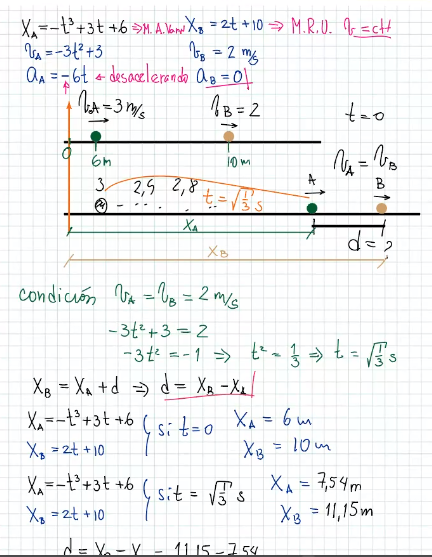 X_A = -t³+3t+6 ⇒ M.A.Var X_B = 2t+10 ⇒ M.R.U. v = ctte
v_A = -3t²+3 v_B = 2 m/s
a_A = -6t ← desacelerando a_B = 0
v_A = 3 m/s v_B = 2 t = 0
0 6m 10m v_A = v_B
3 2,9 2,8 t = √(1/3) s A B
X_A d = ?
X_B
condición v_A = v_B = 2 m/s
-3t² + 3 = 2
-3t² = -1 ⇒ t² = 1/3 ⇒ t = √(1/3) s
X_B = X_A + d ⇒ d = X_B - X_A
X_A = -t³+3t+6 si t=0 X_A = 6 m
X_B = 2t+10 X_B = 10 m
X_A = -t³+3t+6 si t = √(1/3) s X_A = 7,54 m
X_B = 2t+10 X_B = 11,15 m
d = X_B - X_A 11,15 - 7,54